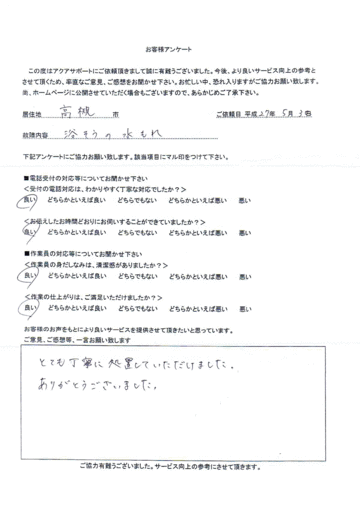 お客様アンケート
この度はアクアサポートにご依頼頂きまして誠に有難うございました。今後、より良いサービス向上の参考と
させて頂くため、率直なご意見、ご感想をお聞かせ下さい。お忙しい中、恐れ入りますがご協力お願い致します。
尚、ホームページに公開させていただく場合もございますので、あらかじめご了承下さい。
居住地 高槻 市 ご依頼日 平成27年 5月 3日
故障内容 浴そうの水もれ
下記アンケートにご協力お願い致します。該当項目にマル印をつけて下さい。
■電話受付の対応等についてお聞かせ下さい
＜受付の電話対応は、わかりやすく丁寧な対応でしたか？＞
良い どちらかといえば良い どちらでもない どちらかといえば悪い 悪い
＜お伝えしたお時間どおりにお伺いすることができていましたか？＞
良い どちらかといえば良い どちらでもない どちらかといえば悪い 悪い
■作業員の対応等についてお聞かせ下さい
＜作業員の身だしなみは、清潔感がありましたか？＞
良い どちらかといえば良い どちらでもない どちらかといえば悪い 悪い
＜作業の仕上がりは、ご満足いただけましたか？＞
良い どちらかといえば良い どちらでもない どちらかといえば悪い 悪い
お客様のお声をもとにより良いサービスを提供させて頂きたいと思っています。
ご意見、ご感想等、一言お願い致します
とても丁寧に処置していただけました。
ありがとうございました。
ご協力有難うございました。サービス向上の参考にさせて頂きます。